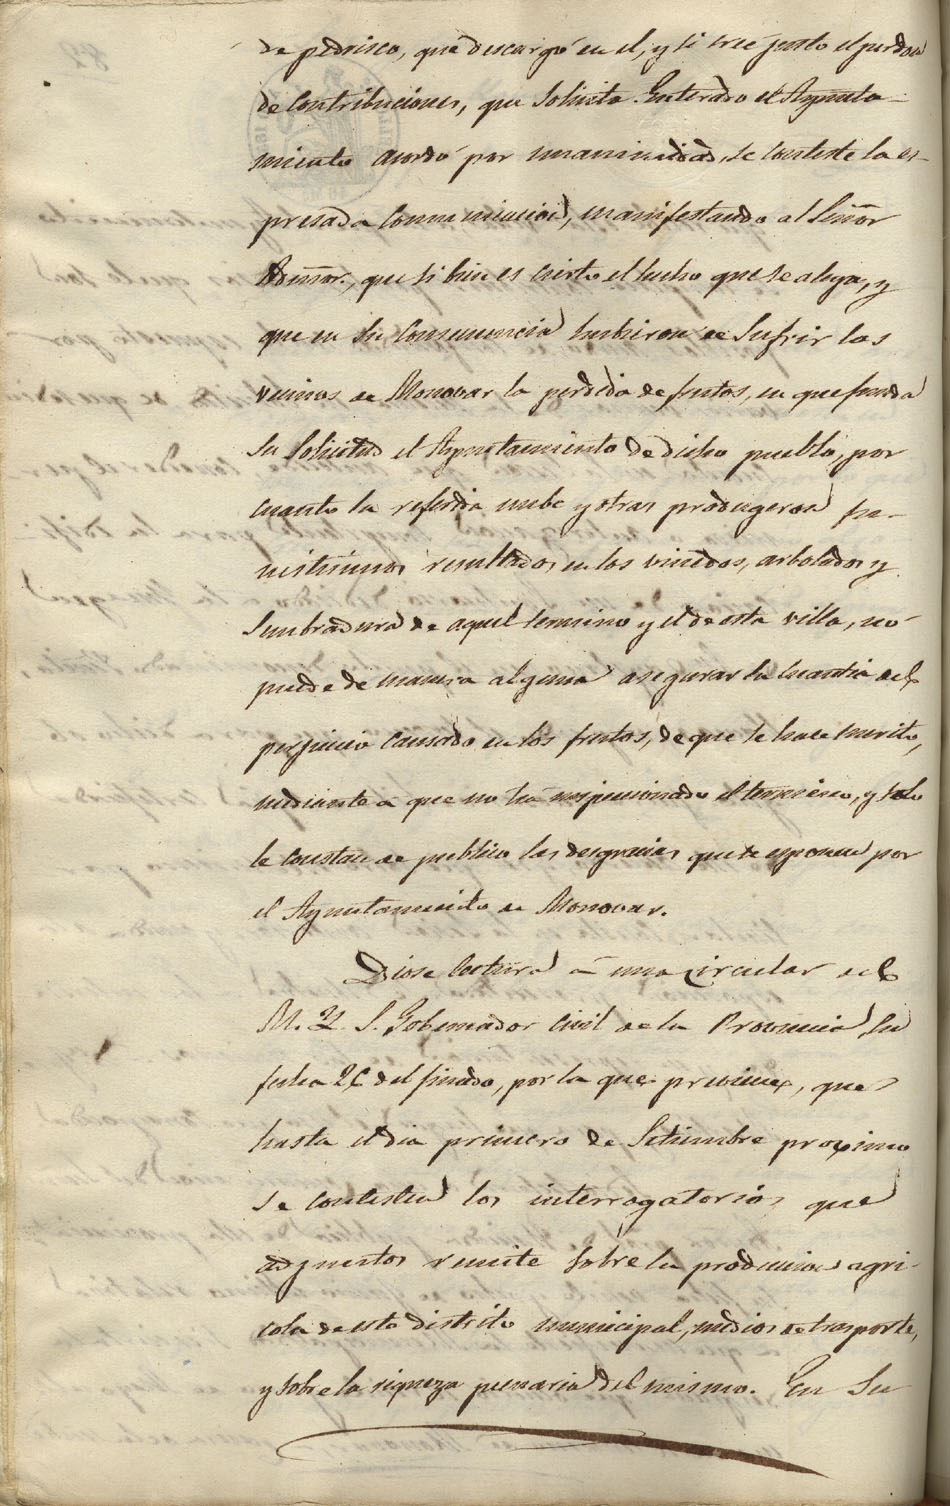 de pedrisco, que descargó en el, y si cree justo el perdon
de contribuciones, que solicita. Enterado el Ayunta-
miento acordó por unanimidad, se conteste la es-
presada comunicacion, manifestando al Señor
Admor., que si bien es cierto el hecho que se alega, y
que en su consecuencia hubieron de sufrir los
vecinos de Monovar la perdida de frutos, en que funda
su solicitud el Ayuntamiento de dicho pueblo, por
cuanto la referida nube y otras produgeron fu-
nestisimos resultados en los viñedos, arbolados y
sembradura de aquel termino y el de esta villa, no
puede de manera alguna asegurar la cuantia del
perjuicio causado en los frutos, de que se hace merito,
mediante á que no ha inspeccionado el terreno, y solo
le constan de publico las desgracias que se esponen por
el Ayuntamiento de Monovar.
Diose lectura á una circular del
M. Y. S. Gobernador Civil de la Provincia su
fecha 26 del finado, por la que previene, que
hasta el dia primero de Setiembre proximo
se contesten los interrogatorios que
adjuntos remite sobre la produccion agri-
cola de este distrito municipal, medios de trasporte,
y sobre la riqueza pecuaria del mismo. En su